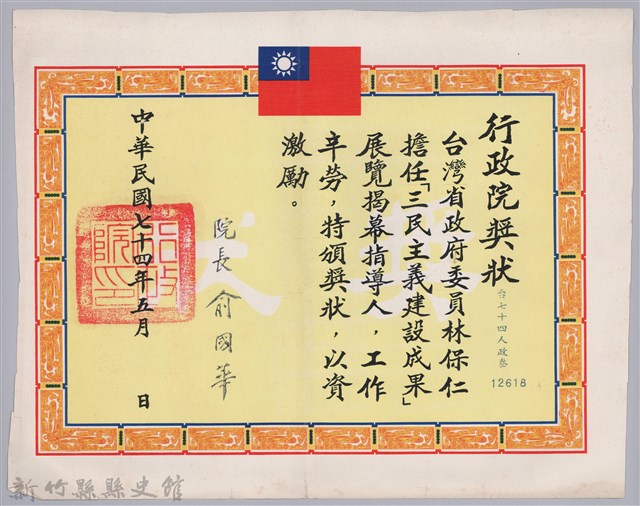 行政院獎狀
台七十四人政叁
12618
台灣省政府委員林保仁
擔任「三民主義建設成果」
展覽揭幕指導人，工作
辛勞，特頒獎狀，以資
激勵。
院長 俞國華
中華民國七十四年五月 日
行政院印
獎狀
新竹縣縣史館